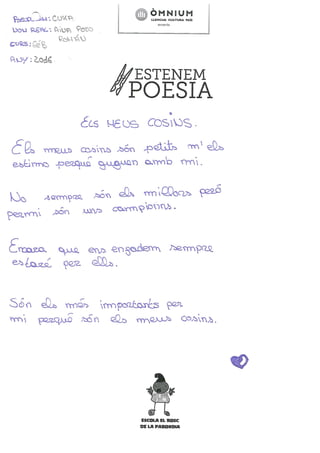 PSEUDÒNIM: CUKA
NOM REAL: AINA POZO
ROMÁN
CURS: 6è B
ANY: 2016
ÒMNIUM
LLENGUA CULTURA PAÍS
ESTENEM
POESIA
ELS MEUS COSINS.
Els meus cosins són petits m'els
estimo perquè juguen amb mi.
No sempre són els millors peró
per mi són uns campions.
Encara que ens engadem sempre
estaré per ells.
Són els més importants per
mi perquè són els meus cosins.
ESCOLA EL ROIC
DE LA PARROKIA